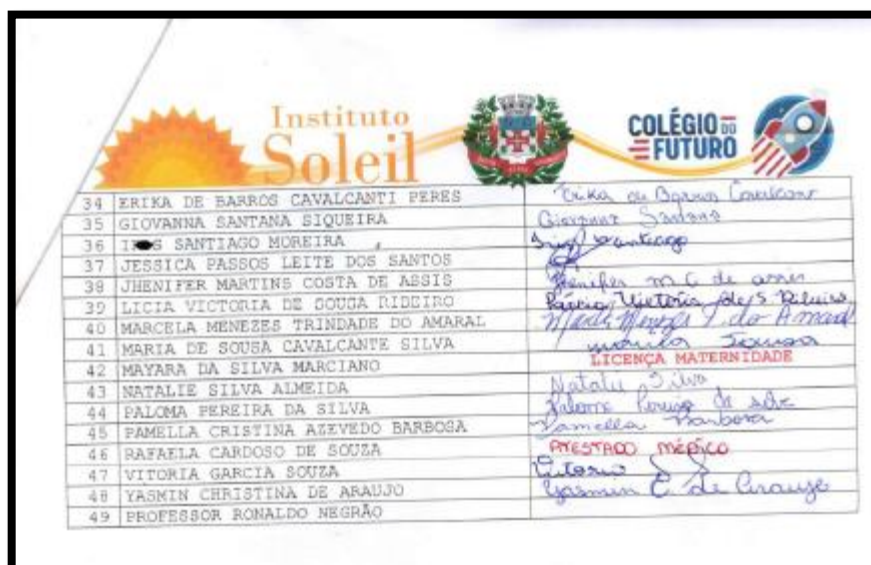 Instituto
Soleil
COLÉGIO DO
FUTURO
34 ERIKA DE BARROS CAVALCANTI PERES Erika de Barros Cavalcanti
35 GIOVANNA SANTANA SIQUEIRA Giovanna Santana
36 S SANTIAGO MOREIRA Santiago
37 JESSICA PASSOS LEITE DOS SANTOS
38 JHENIFER MARTINS COSTA DE ASSIS Jhenifer m C de assis
39 LICIA VICTORIA DE SOUSA RIBEIRO Victoria de S Ribeiro
40 MARCELA MENEZES TRINDADE DO AMARAL Menezes T. do Amaral
41 MARIA DE SOUSA CAVALCANTE SILVA Sousa
42 MAYARA DA SILVA MARCIANO LICENÇA MATERNIDADE
43 NATALIE SILVA ALMEIDA Natalie Silva
44 PALOMA PEREIRA DA SILVA Paloma Pereira da Silva
45 PAMELLA CRISTINA AZEVEDO BARBOSA Pamella Barbosa
46 RAFAELA CARDOSO DE SOUZA ATESTADO MÉDICO
47 VITORIA GARCIA SOUZA Vitoria
48 YASMIN CHRISTINA DE ARAUJO Yasmin C. de Araujo
49 PROFESSOR RONALDO NEGRÃO